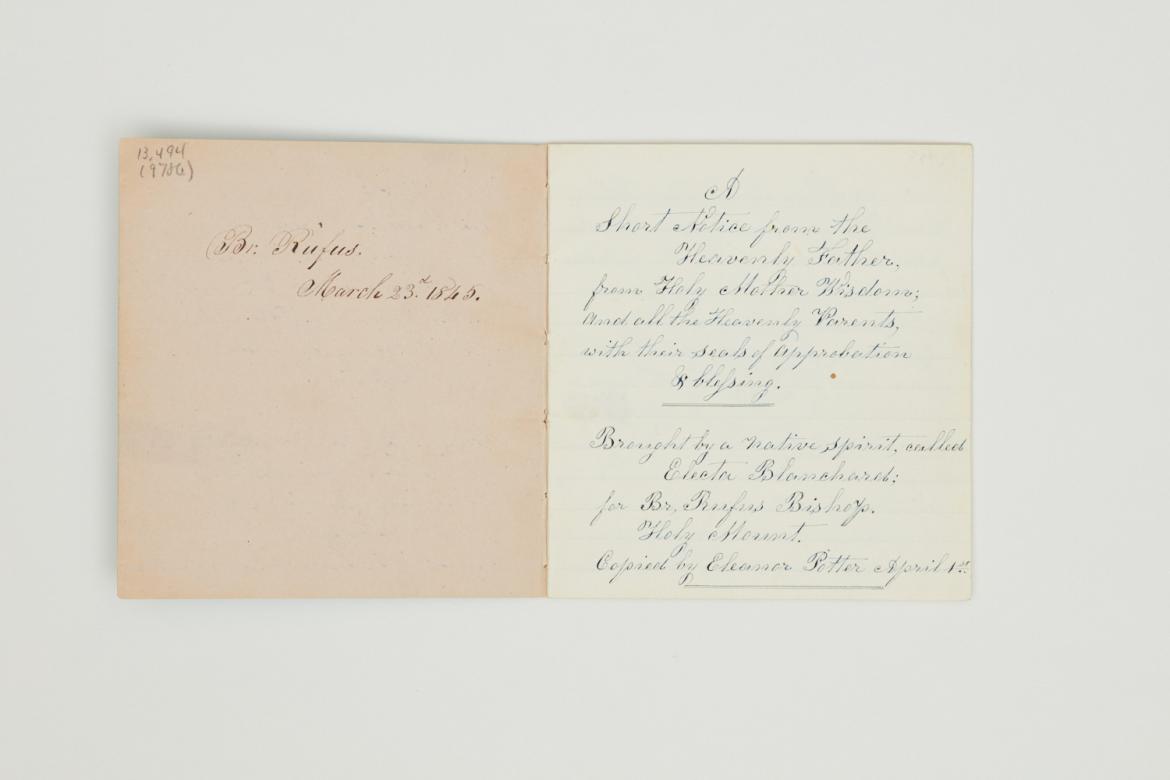 13,494
(9786)
Br. Rufus.
March 23.d 1845.
A
Short Notice from the
Heavenly Father,
from Holy Mother Wisdom;
And all the Heavenly Parents,
with their seals of approbation
& blessing.
Brought by a native spirit, called
Electa Blanchard:
for Br. Rufus Bishop.
Holy Mount.
Copied by Eleanor Potter April 1st.